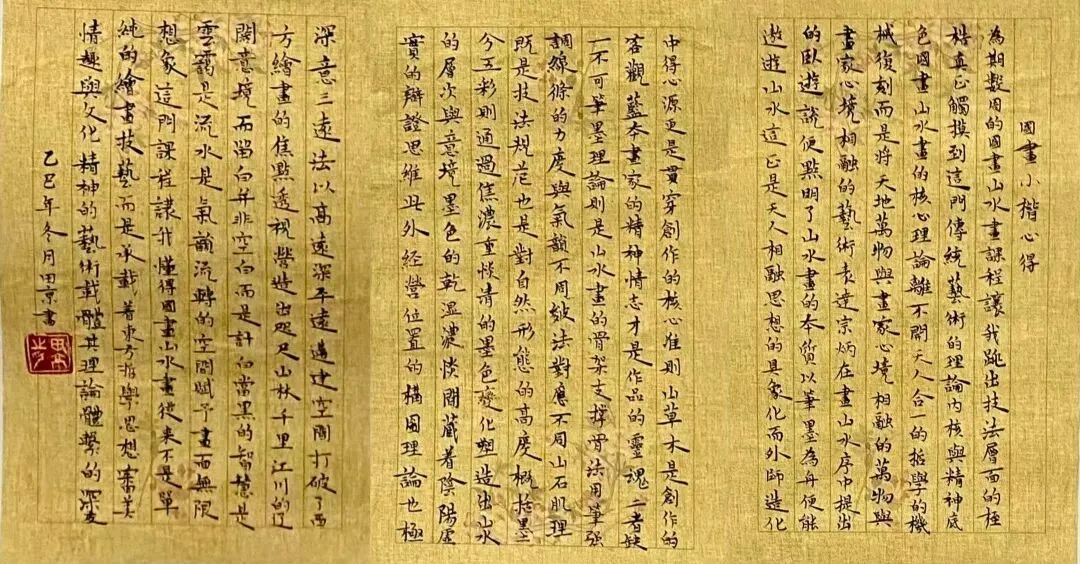 國畫小楷心得
為期數周的國畫山水畫課程讓我跳出技法層面的桎
梏真正觸摸到這門傳統藝術的理論內核與精神底
色國畫山水畫的核心理論離不開天人合一的哲學的機
械復刻而是將天地萬物與畫家心境相融的萬物與
畫家心境相融的藝術表達宗炳在畫山水序中提出
的臥遊說便點明了山水畫的本質以筆墨為舟便能
遨遊山水這正是天人相融思想的具象化而外師造化
中得心源更是貫穿創作的核心准則山草木是創作的
客觀藍本畫家的精神情志才是作品的靈魂二者缺
一不可筆墨理論則是山水畫的骨架支撐骨法用筆強
調線條的力度與氣韻不同皴法對應不同山石肌理
既是技法規范也是對自然形態的高度概括墨
分五彩則通過焦濃重淡清的墨色變化塑造出山水
的層次與意境墨色的乾濕濃淡間藏着陰陽虛
實的辯證思維此外經營位置的構圖理論也極
深意三遠法以高遠深平遠遠建空間打破了西
方繪畫的焦點透視營造出咫尺山林千里江川的遼
闊意境而留白并非空白而是計白當黑的智慧是
雲靄是流水是氣韻流轉的空間賦予畫面無限
想象這門課程讓我懂得國畫山水畫從來不是單
純的繪畫技藝而是承載着東方哲學思想審美
情趣與文化精神的藝術載體其理論體繫的深度
乙巳年冬月田京書